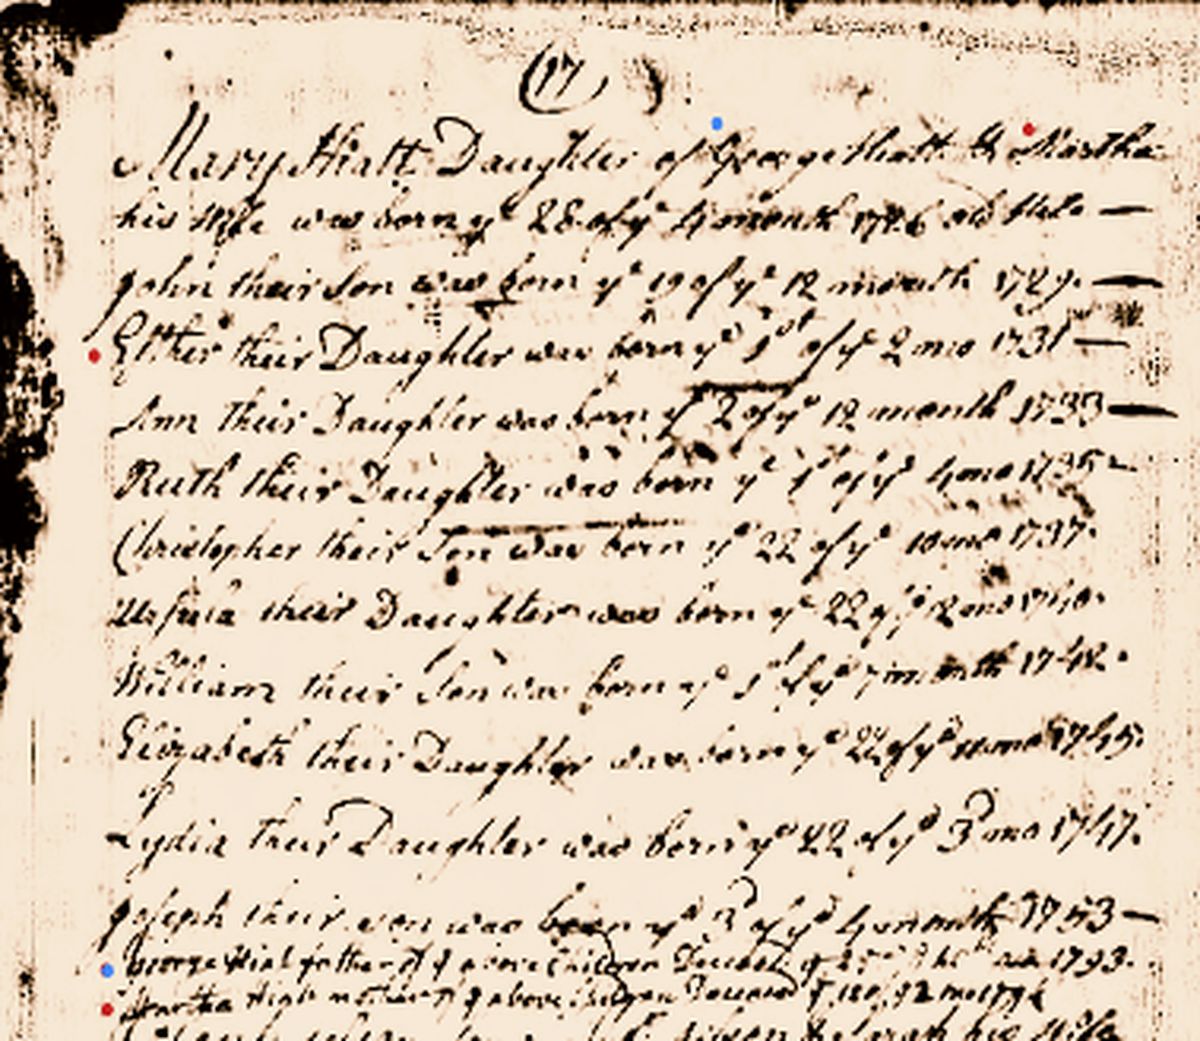 (17)
Mary Hiatt Daughter of George Hiatt & Martha
his Wife was born ye 28 of ye 4 month 1726 old Stile
John their Son was born ye 19 of ye 12 month 1729.
Esther their Daughter was born ye 1st of ye 2 mo 1731
Ann their Daughter was born ye 2 of ye 12 month 1733
Ruth their Daughter was born ye 1st of ye 4 mo 1735
Christopher their Son was born ye 22 of ye 10 mo 1737.
Ursula their Daughter was born ye 22 of ye 12 mo 1740.
William their Son was born ye 1st of ye 7 month 1742.
Elizabeth their Daughter was born ye 22 of ye 11 mo 1745.
Lydia their Daughter was born ye 22 of ye 3 mo 1747.
Joseph their son was born ye 3d of ye 4 month 1753
George Hiat father of ye above Children Deceased ye 25th 1793.
Martha Hiat mother of ye above Children Deceased ye 12 mo
his Wife